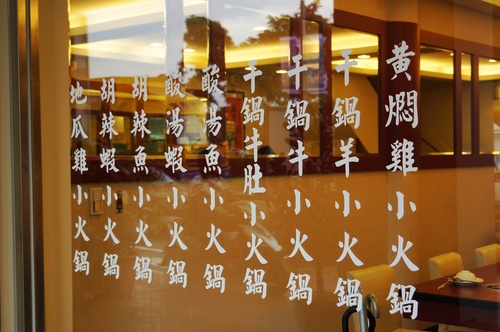 黄燜雞小火鍋
干鍋羊小火鍋
干鍋牛小火鍋
干鍋牛肚小火鍋
酸湯魚小火鍋
酸湯蝦小火鍋
胡辣魚小火鍋
胡辣蝦小火鍋
地瓜雞小火鍋